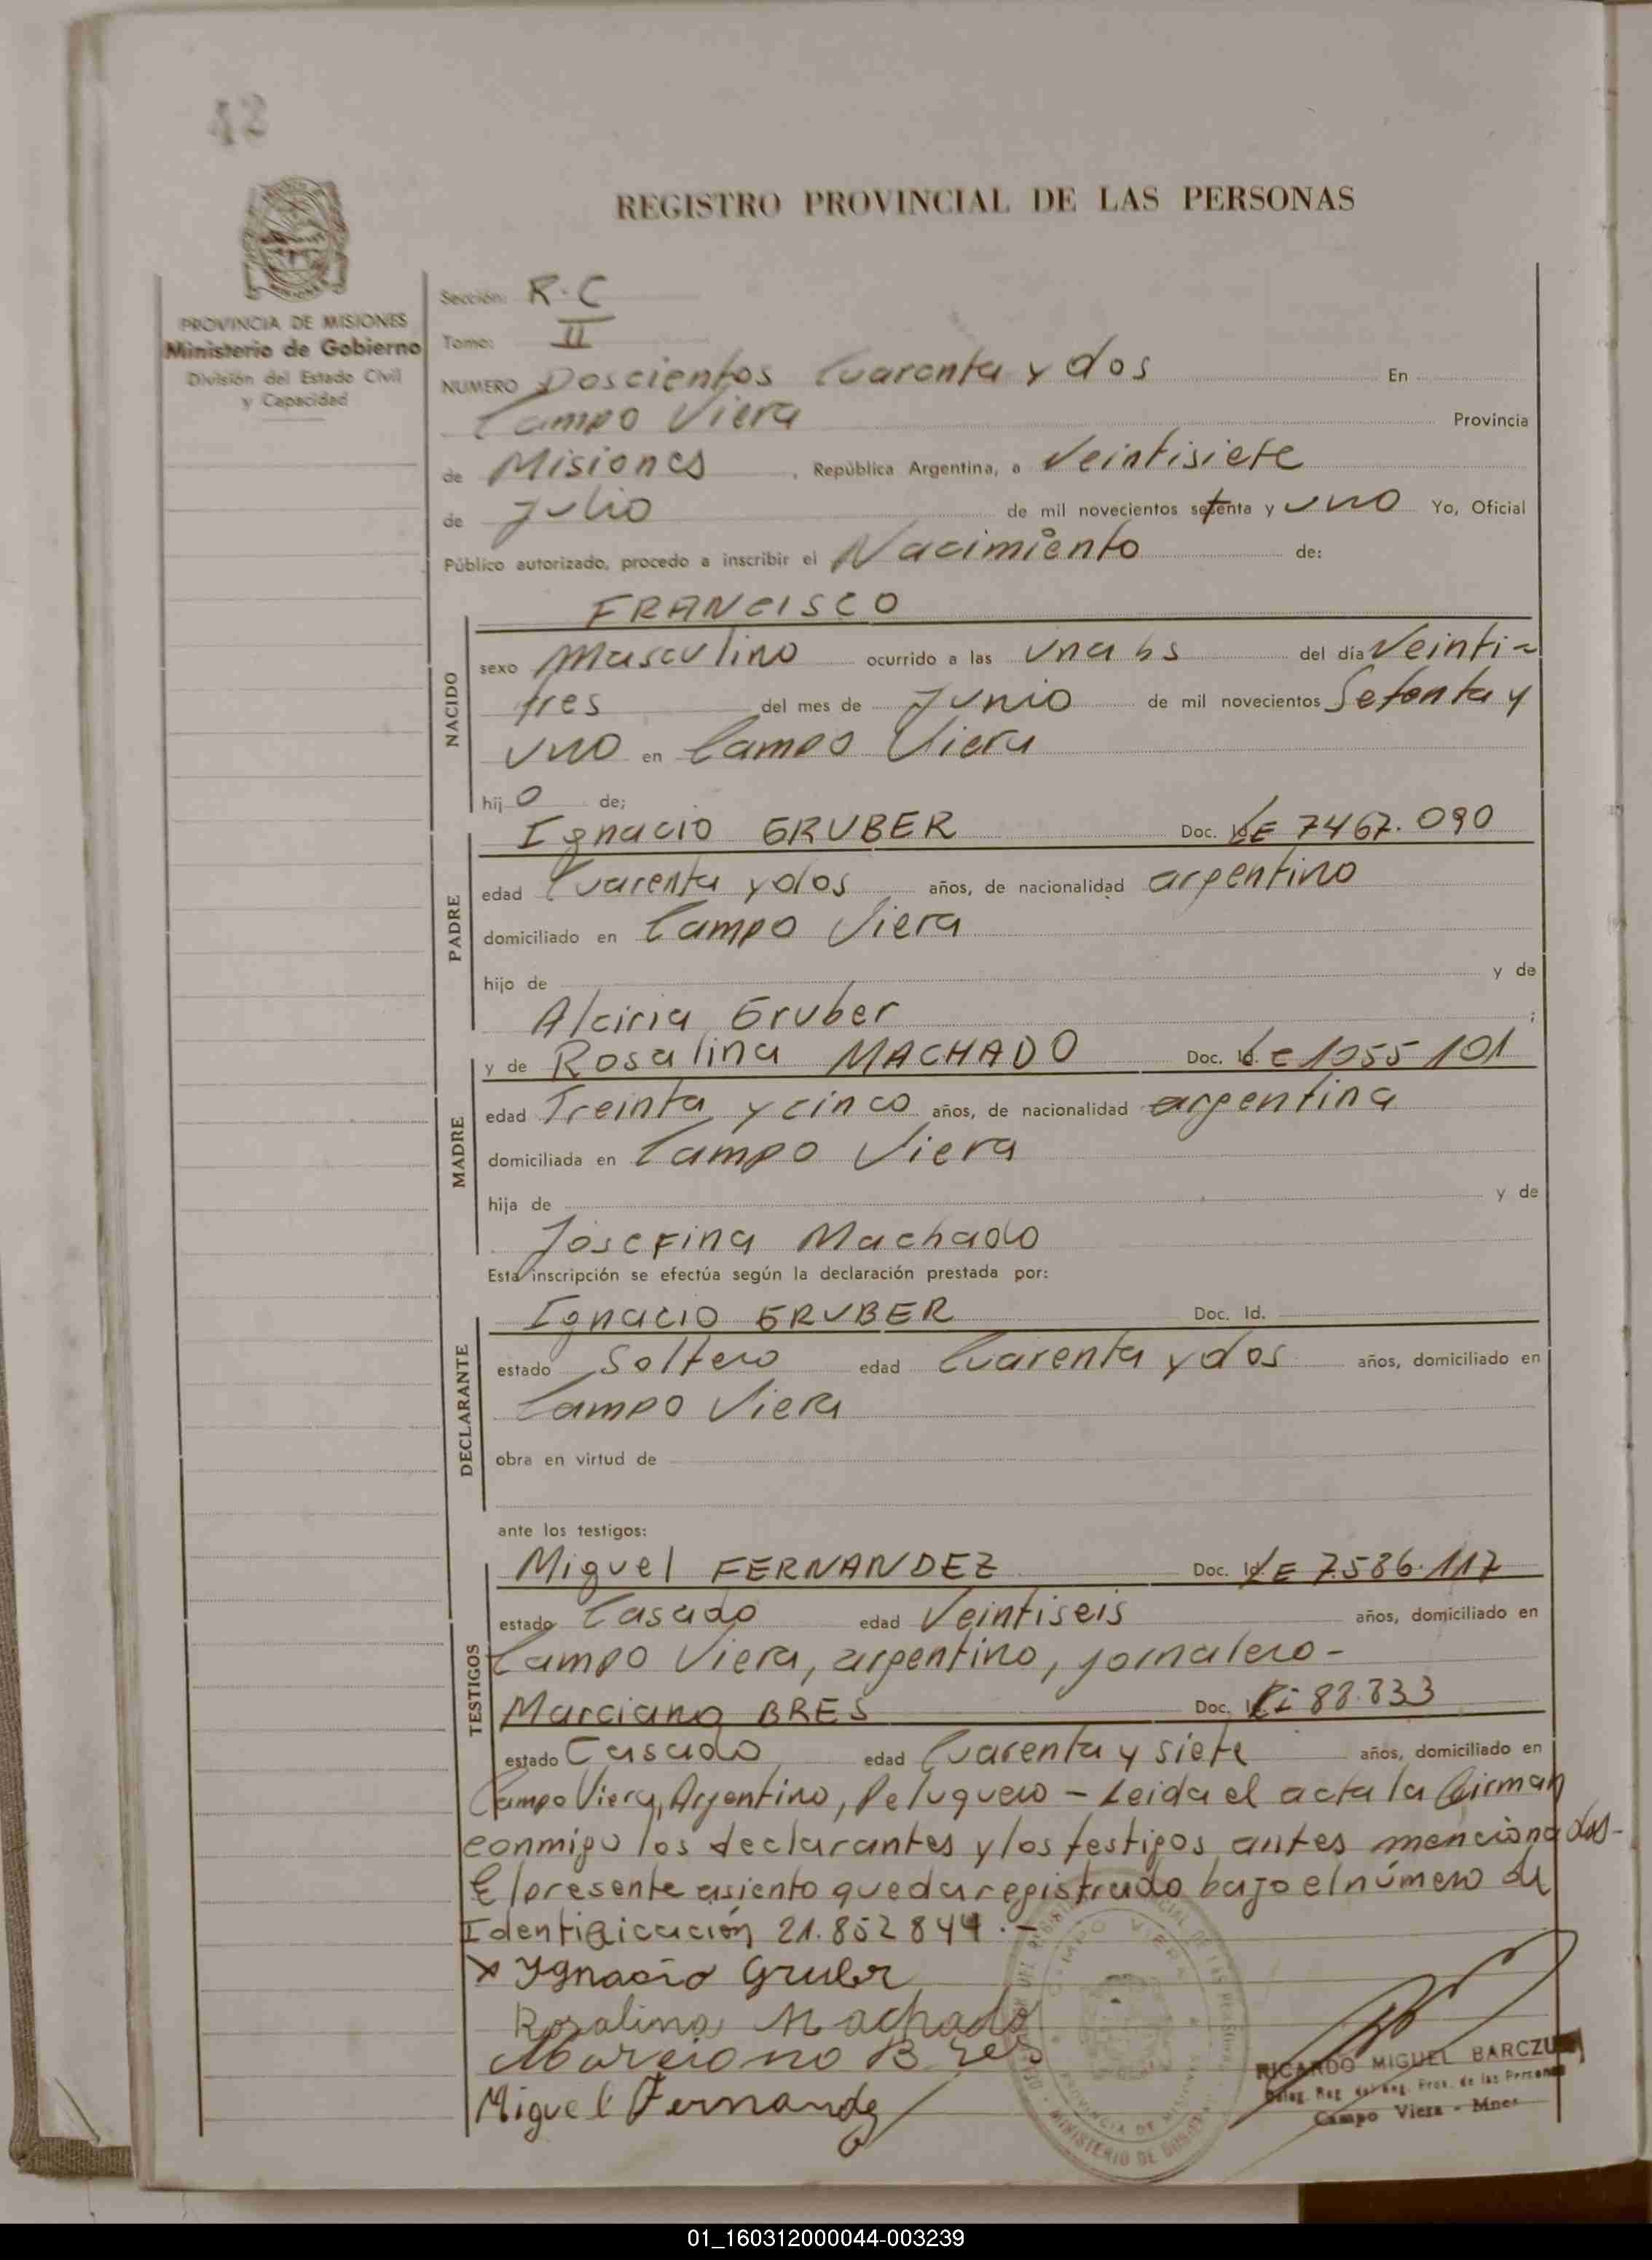 42
REGISTRO PROVINCIAL DE LAS PERSONAS
PROVINCIA DE MISIONES
Ministerio de Gobierno
División del Estado Civil
y Capacidad
Sección: R.C
Tomo: II
NUMERO Doscientos Cuarenta y dos En
Campo Viera Provincia
de Misiones, República Argentina, a Veintisiete
de Julio de mil novecientos setenta y uno Yo, Oficial
Público autorizado, procedo a inscribir el Nacimiento de:
NACIDO
FRANCISCO
sexo Masculino ocurrido a las una hs del día Veinti-
tres del mes de Junio de mil novecientos Setenta y
uno en Campo Viera
hijo de;
PADRE
Ignacio GRUBER Doc. LE 7467.090
edad Cuarenta y dos años, de nacionalidad argentino
domiciliado en Campo Viera
hijo de y de
Alciria Gruber ;
MADRE
y de Rosalina MACHADO Doc. Id. LC 1055101
edad Treinta y cinco años, de nacionalidad argentina
domiciliada en Campo Viera
hija de y de
Josefina Machado
Esta inscripción se efectúa según la declaración prestada por:
DECLARANTE
Ignacio GRUBER Doc. Id.
estado Soltero edad Cuarenta y dos años, domiciliado en
Campo Viera
obra en virtud de
ante los testigos:
TESTIGOS
Miguel FERNANDEZ Doc. Id. LE 7.586.117
estado Casado edad Veintiseis años, domiciliado en
Campo Viera, argentino, jornalero-
Marciano BRES Doc. Ci 88.833
estado Casado edad Cuarenta y siete años, domiciliado en
Campo Viera, Argentino, Peluquero - Leida el acta la firman
conmigo los declarantes y los testigos antes mencionados-
El presente asiento queda registrado bajo el número de
Identificación 21.852844.-
x Ygnacio Gruber
Rosalina Machado
Marciano Bres
Miguel Fernandez
CAMPO VIERA
PROVINCIA DE MISIONES
MINISTERIO DE GOBIERNO
RICARDO MIGUEL BARCZUK
Deleg. Reg. Prov. de las Personas
Campo Viera - Mnes
01_160312000044-003239